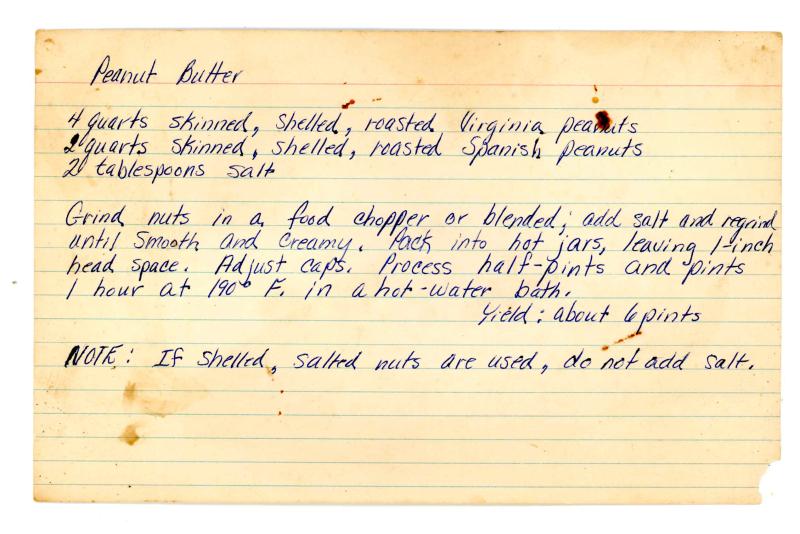 Peanut Butter
4 quarts skinned, shelled, roasted Virginia peanuts
2 quarts skinned, shelled, roasted Spanish peanuts
2 tablespoons salt
Grind nuts in a food chopper or blended; add salt and regrind
until smooth and creamy. Pack into hot jars, leaving 1-inch
head space. Adjust caps. Process half-pints and pints
1 hour at 190° F. in a hot-water bath.
Yield: about 6 pints
NOTE: If shelled, salted nuts are used, do not add salt.